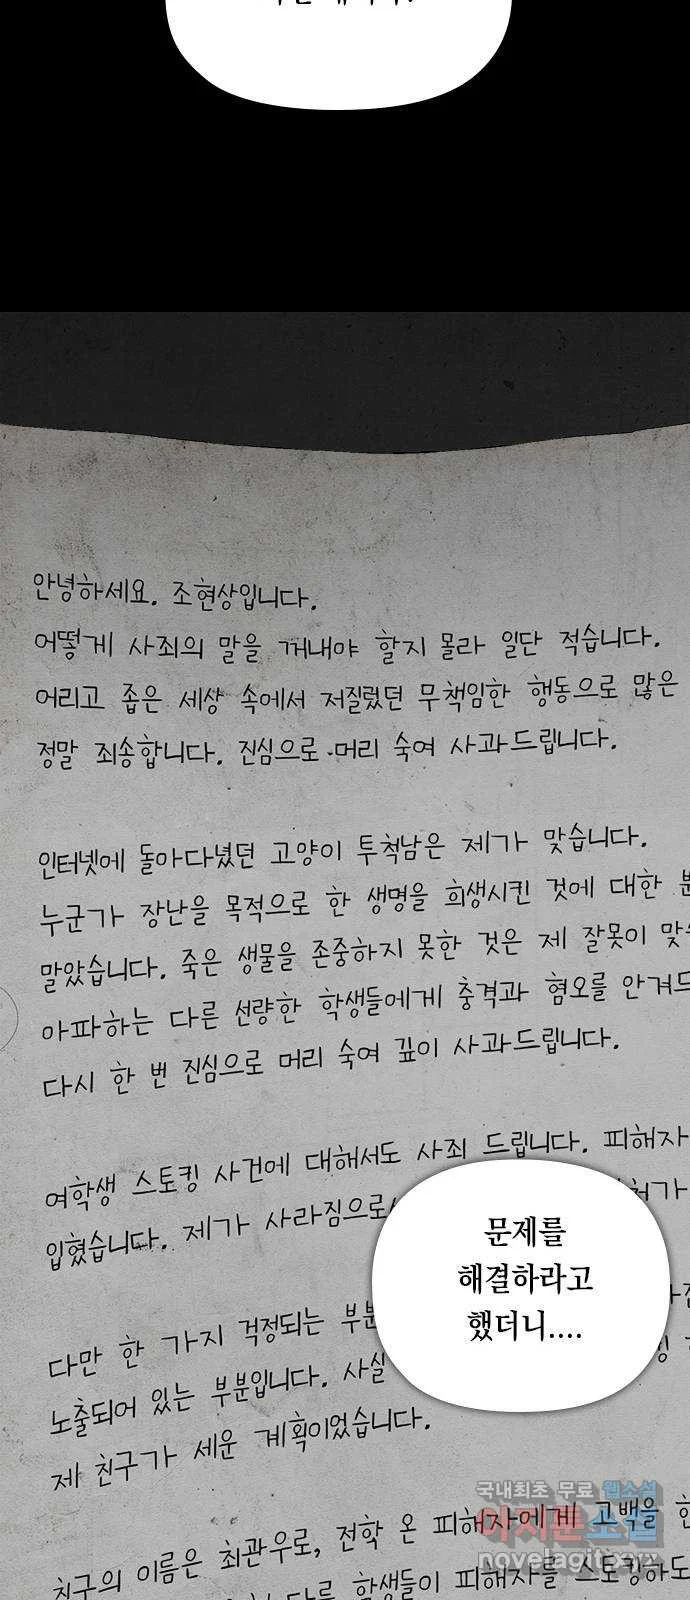 안녕하세요. 조현상입니다.
어떻게 사죄의 말을 꺼내야 할지 몰라 일단 적습니다.
어리고 좁은 세상 속에서 저질렀던 무책임한 행동으로 많은
정말 죄송합니다. 진심으로 머리 숙여 사과드립니다.
인터넷에 돌아다녔던 고양이 투척남은 제가 맞습니다.
누군가 장난을 목적으로 한 생명을 희생시킨 것에 대한 분
말았습니다. 죽은 생물을 존중하지 못한 것은 제 잘못이 맞
아파하는 다른 선량한 학생들에게 충격과 혐오를 안겨드
다시 한 번 진심으로 머리 숙여 깊이 사과드립니다.
여학생 스토킹 사건에 대해서도 사죄 드립니다. 피해자
입혔습니다. 제가 사라짐으로
문제를
해결하라고
했더니....
다만 한 가지 걱정되는 부분
노출되어 있는 부분입니다. 사실
제 친구가 세운 계획이었습니다.
친구의 이름은 최관우로, 전학 온 피해자에게 고백을 한
다른 학생들이 피해자를 스토킹하도
국내최초 무료 웹소설
아지툰소설
novelagit